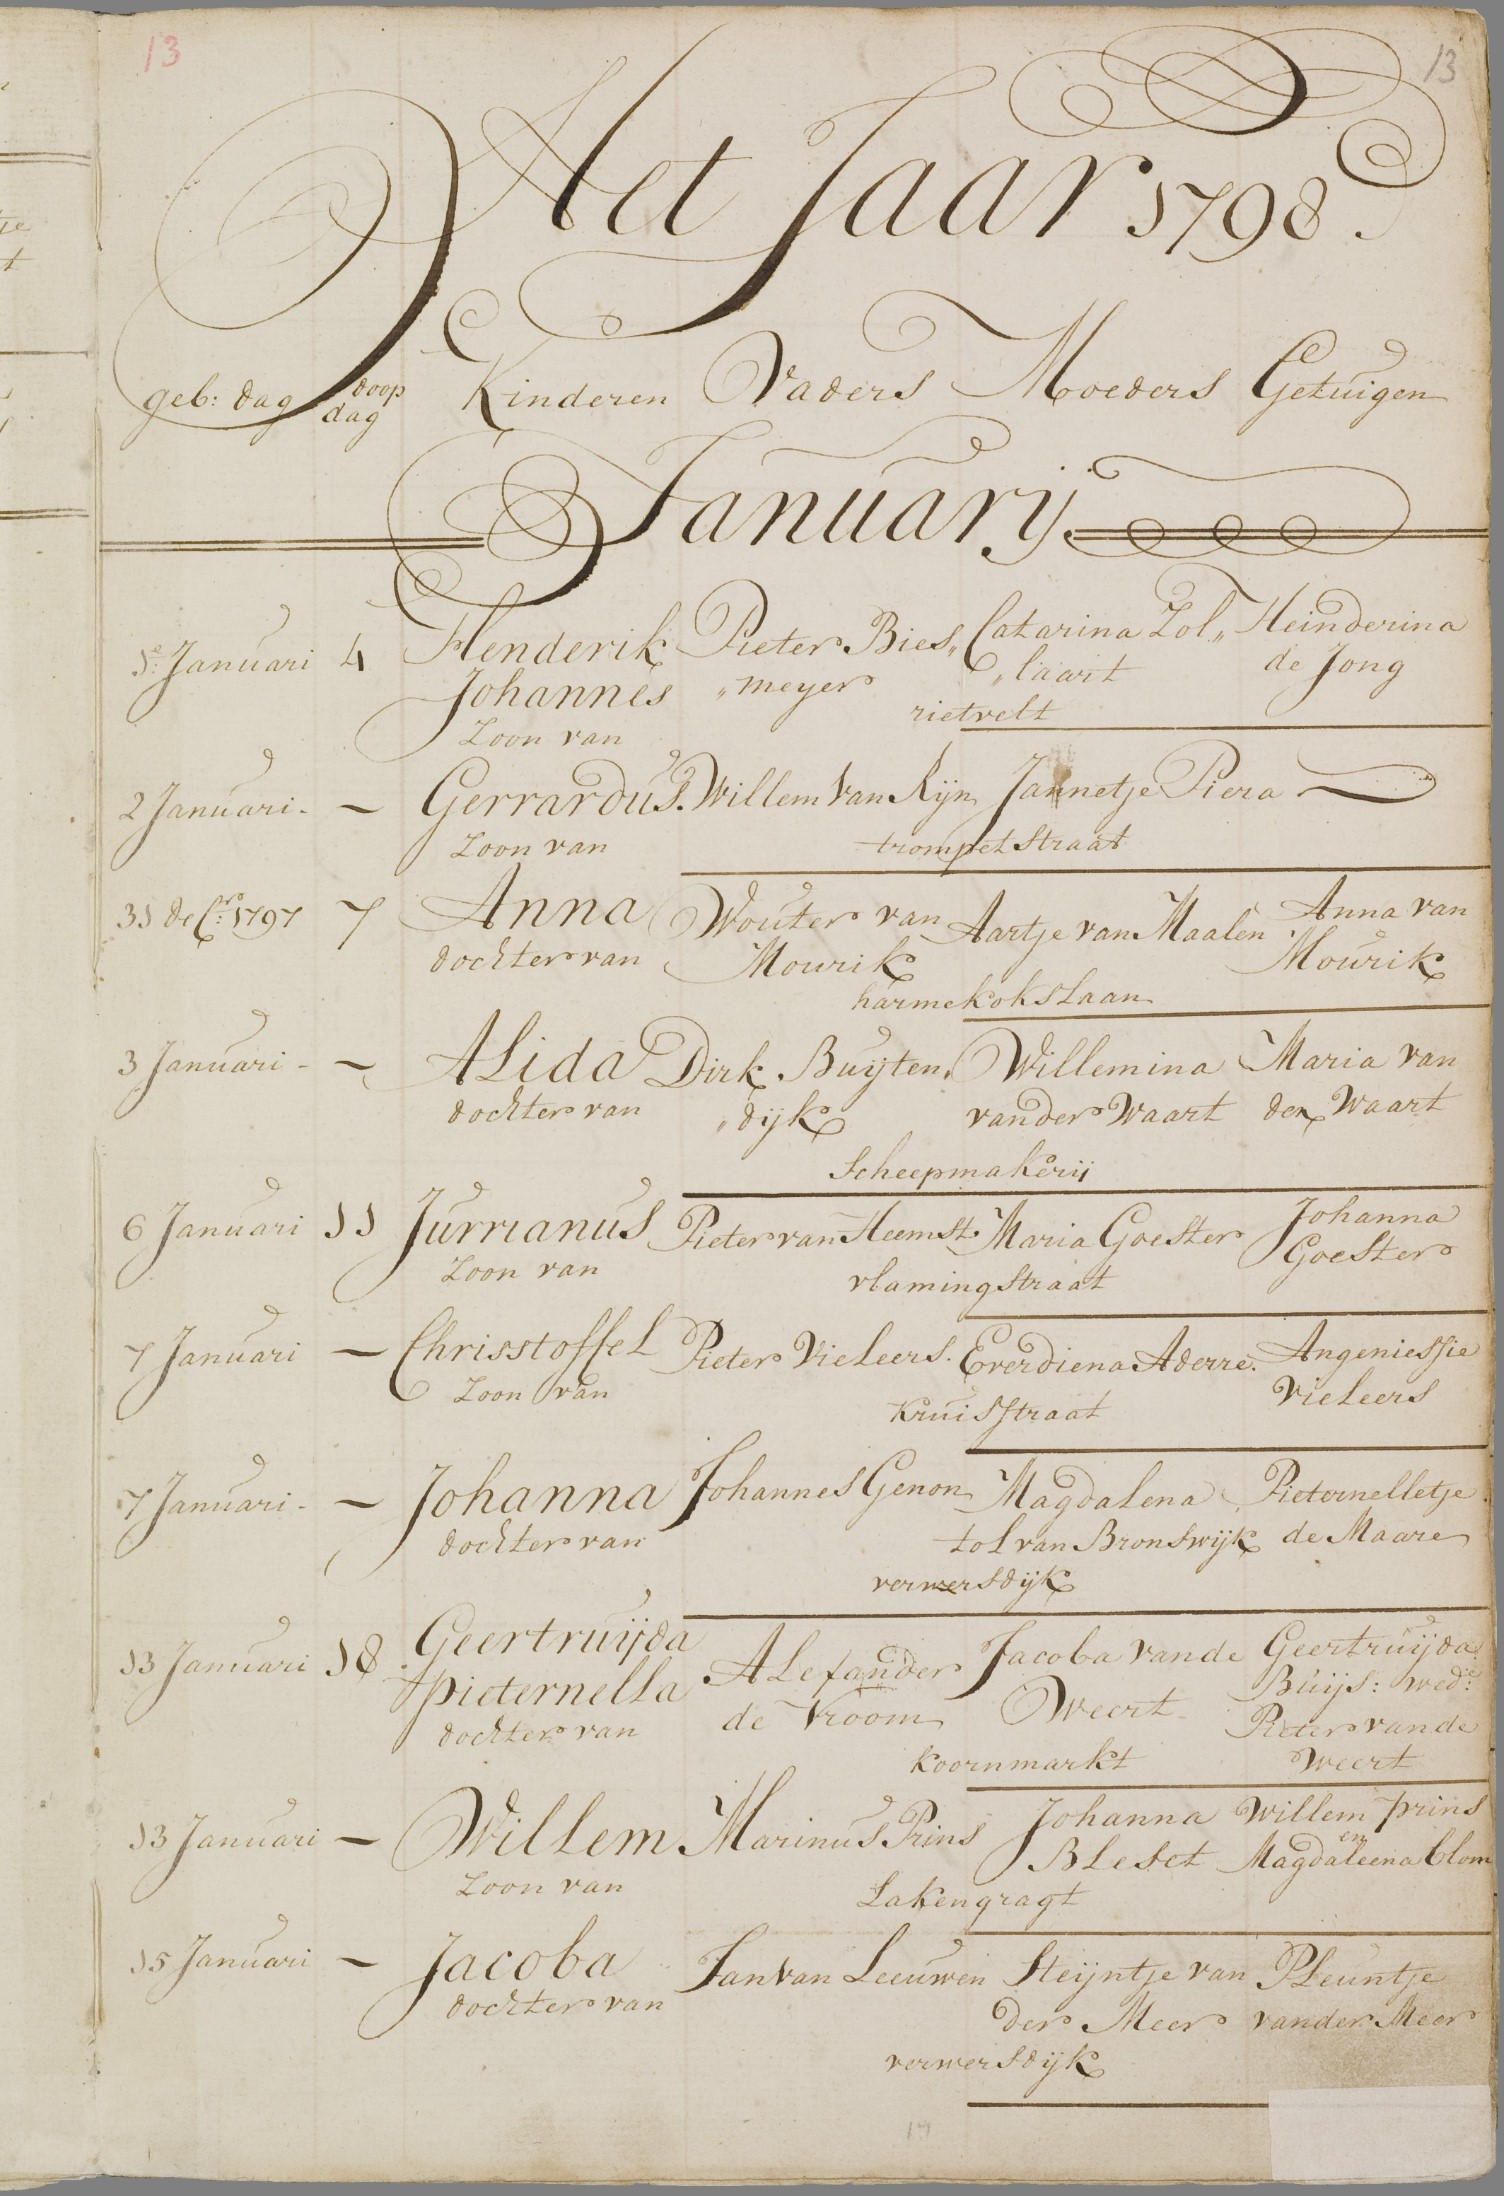 13
13
Het Jaar 1798.
geb: dag doop dag Kinderen Vaders Moeders Getuigen
January
1e: Januari 4 Henderik Pieter Bies„ Catarina Zol„ Heinderina
Johannes „meyer „laart de Jong
Zoon van rietvelt
2 Januari - — Gerrardus. Willem van Rijn Jannetje Piera —
Zoon van trompet Straat
31 decr: 1797 7 Anna Wouter van Aartje van Maalen Anna van
dochter van Mourik Mourik
harmekokslaan
3 Januari - — ALida Dirk Buijten„ Willemina Maria van
dochter van „dijk vander Waart der Waart
Scheepmakerij
6 Januari 11 Jurrianus Pieter van Heemst. Maria Goester Johanna
Zoon van Goester
vlamingstraat
7 Januari — Chrisstoffel Pieter Vieleers. Everdiena Aderre. Angeniessie
Zoon van Vieleers
Kruisstraat
7 Januari - — Johanna Johannes Genon Magdalena Pieternelletje
dochter van tol van Bronswijk de Maare
verwersdijk
13 Januari 18 Geertruijda
pieternella ALexander Jacoba vande Geertruijda
dochter van de Vroom Weert Buijs: wede:
Pieter vande
koornmarkt Weert
13 Januari — Willem Marinus Prins Johanna Willem prins
en
Zoon van BLeset Magdaleena blom
Lakengragt
15 Januari — Jacoba Jan van Leeuwen Steijntje van PLeuntje
dochter van der Meer vander Meer
verwersdijk